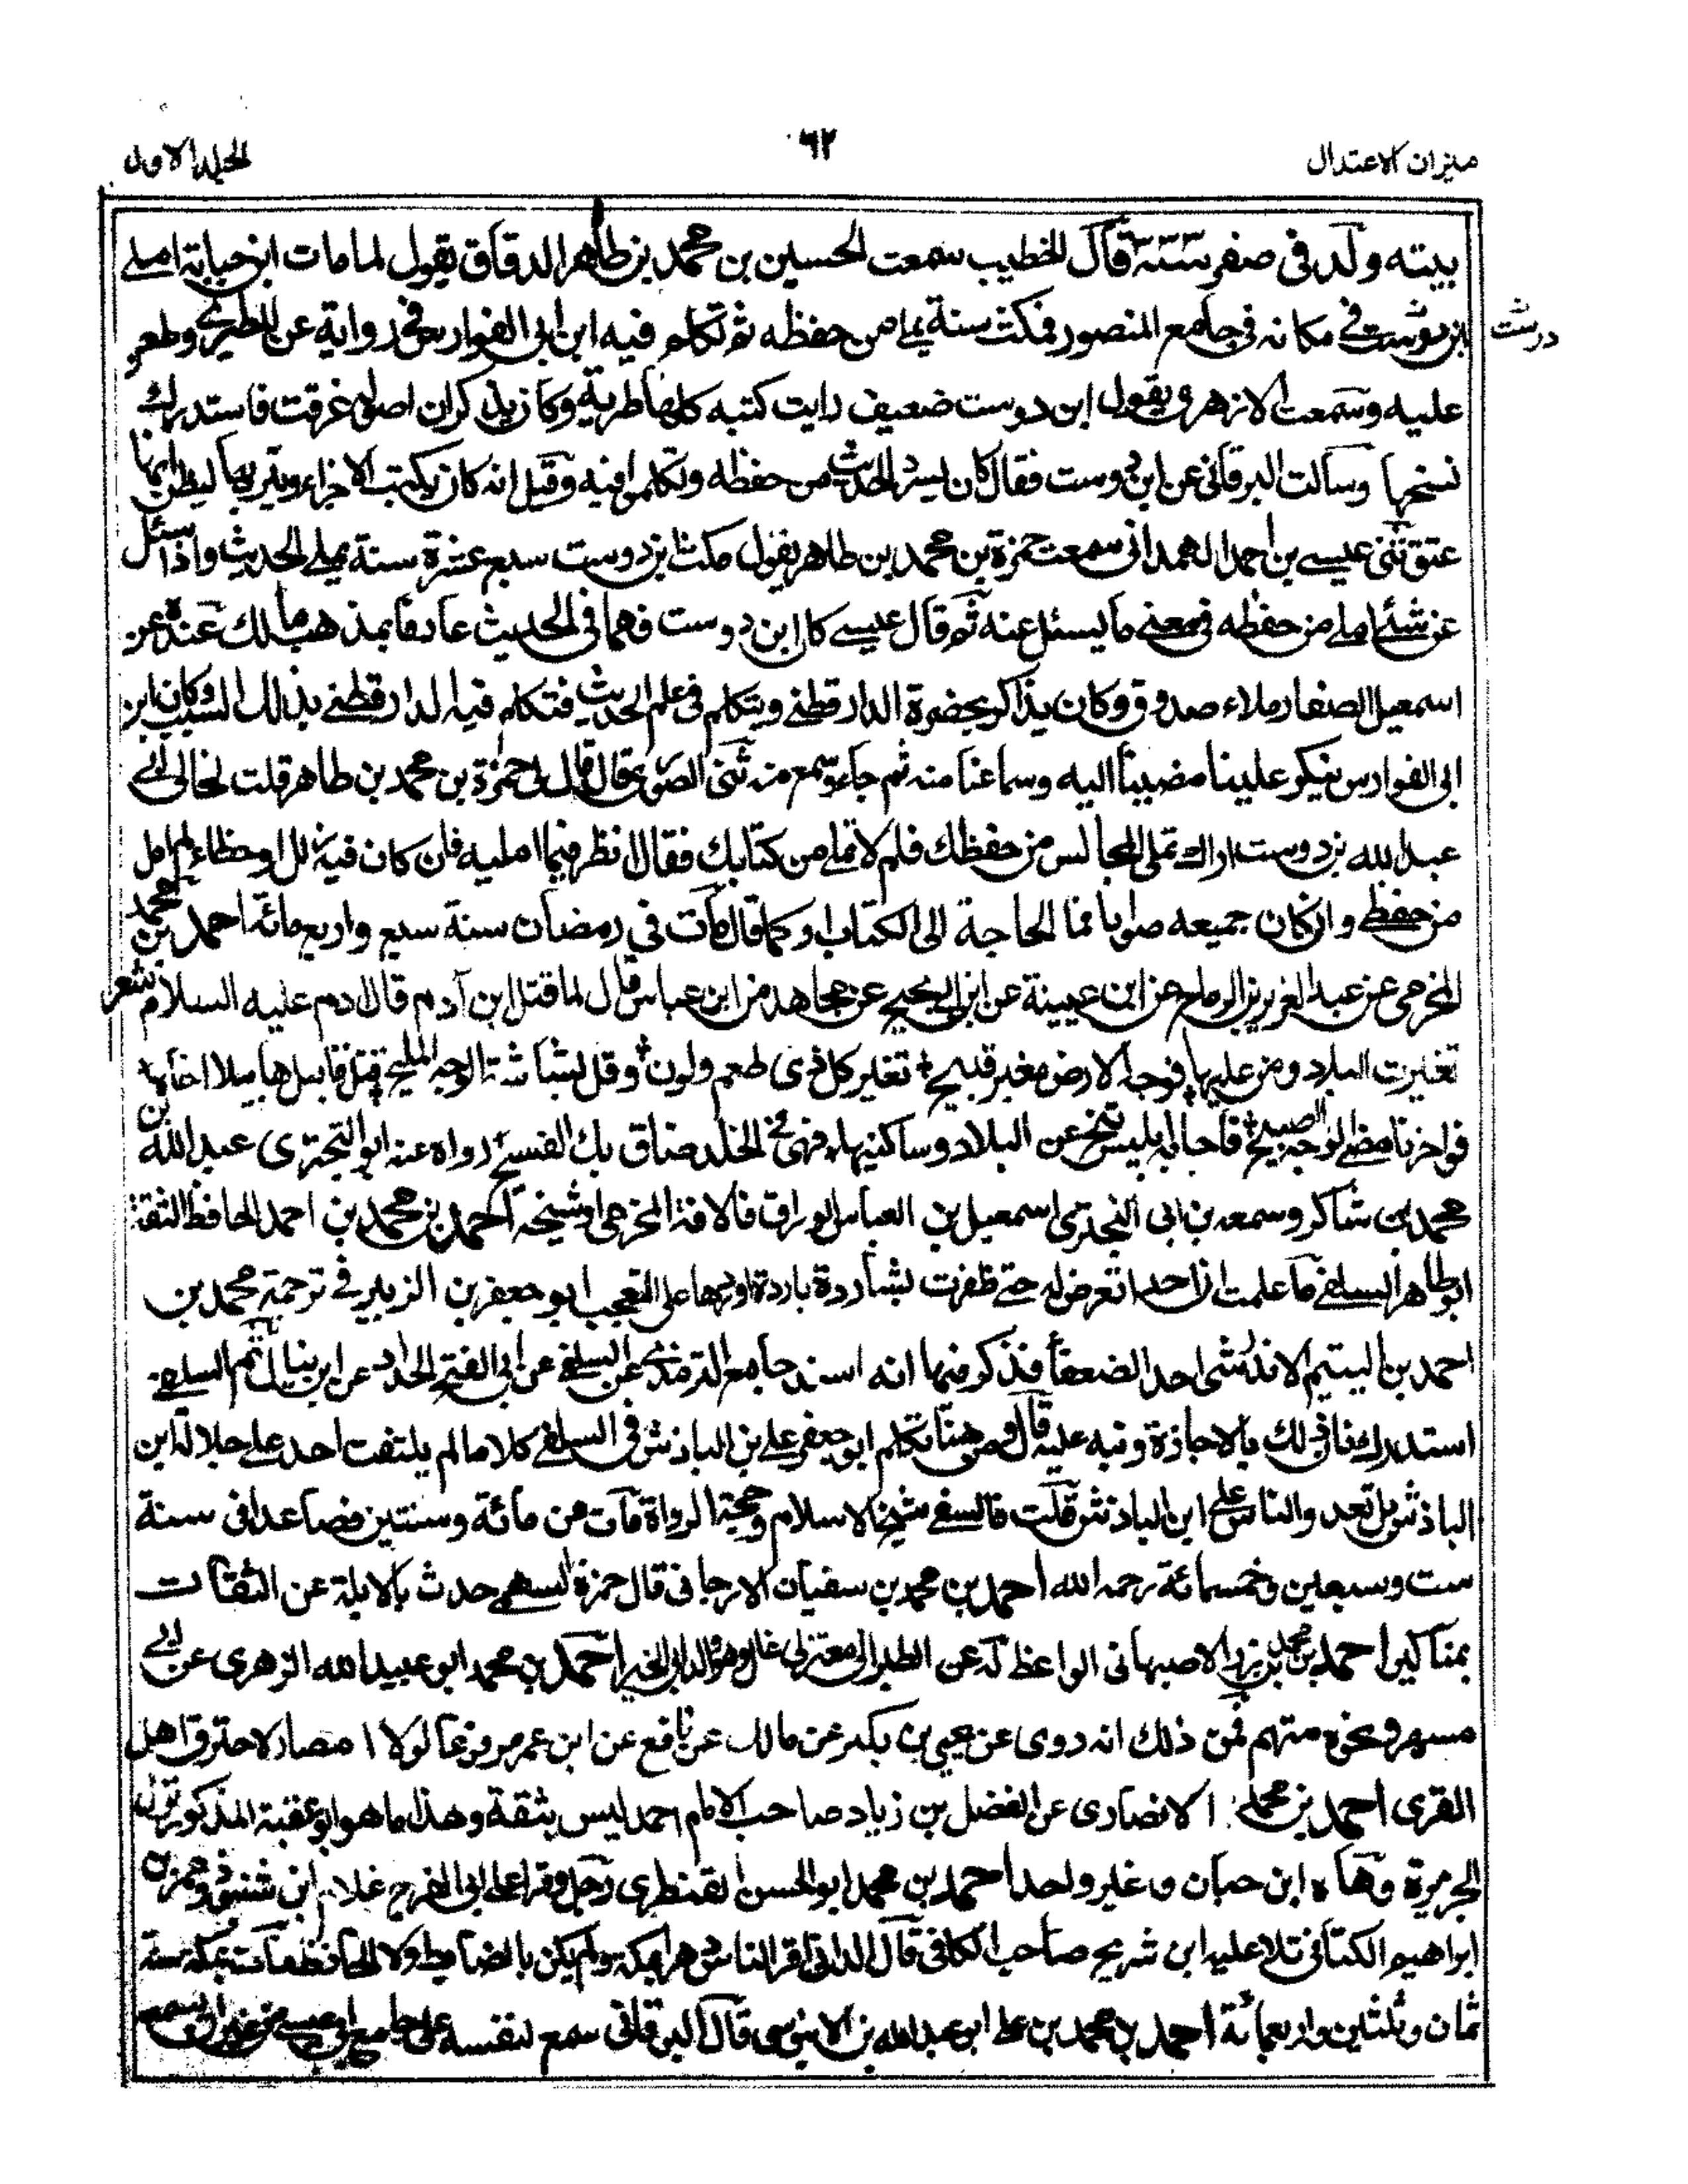 ميزان الاعتدال ٦٢ الجلد الاول
بيته ولد فى صفر قال الخطيب سمعت الحسين بن محمد بن طاهر الدقاق يقول لما مات ابن حبابة املى
ابن دوست فى مكانه فى جامع المنصور فمكث سنة يملى من حفظه ثم تكلم فيه ابن ابى الفوارس فى رواية عن المطيرى وطعن
درست
عليه وسمعت الازهرى يقول ابن دوست ضعيف رايت كتبه كلها طرية وكان يذكران اصوله غرقت فاستدرك
نسخها وسألت البرقانى عن ابن دوست فقال كان يسرد الحديث من حفظه وتكلموا فيه وقيل انه كان يكتب الاجزاء ويتربها ليظن انها
عتق ثنى عيسى بن احمد الهمدانى سمعت حمزة بن محمد بن طاهر يقول مكث ابن دوست سبع عشرة سنة يملى الحديث واذا سئل
عن شئ املى من حفظه فى معنى ما يسئل عنه ثم قال عيسى كان ابن دوست فهما فى الحديث عارفا بمذهب مالك عنده عن
اسمعيل الصفار ملاء صندوق وكان يذاكر بحضرة الدارقطنى ويتكلم فى علم الحديث فتكلم فيه الدارقطنى بذلك السبب وكان ابن
ابى الفوارس ينكر علينا مضينا اليه وسماعنا منه ثم جاء وسمع منه ثنى الصورى قال قال لى حمزة بن محمد بن طاهر قلت لخالى ابى
عبد الله بن دوست اراك تملى المجالس من حفظك فلم لا تملى من كتابك فقال انظر فيما امليه فان كان فيه زلل او خطاء لم امل
من حفظى وان كان جميعه صوابا فما الحاجة الى الكتاب او كما قال مات فى رمضان سنة سبع واربعمائة احمد بن محمد
المخرمى عن عبد العزيز بن الرماح عن ابن عيينة عن ابن ابى نجيح عن مجاهد عن ابن عباس قال لما قتل ابن آدم قال ادم عليه السلام شعر
تغيرت البلاد ومن عليها فوجه الارض مغبر قبيح تغير كل ذى طعم ولون وقل بشاشة الوجه المليح قتل قابيل هابيلا اخاه
فواحزنا مضى الوجه الصبيح فاجابه ابليس تنح عن البلاد وساكنيها فى الخلد ضاق بك الفسيح رواه عنه ابو البخترى عبد الله بن
محمد بن شاكر وسمعه بن ابى البخترى اسمعيل بن العباس الوراق فالافة المخرمى او شيخه احمد بن محمد بن احمد الحافظ الثقة
ابو طاهر السلفى ما علمت ان احدا تعرض له حتى ظفرت بشأردة باردة اوردها على التعجب ابو جعفر بن الزبير فى ترجمة محمد بن
احمد بن اليتيم الاندشى احد الضعفأ فذكر فيها انه اسند جامع الترمذى عن السلفى عن ابى الفتح الحداد عن ابن ينال ثم السلفى
استدرك فى ذلك بالاجازة ونبه عليه قال ومن هنا تكلم ابو جعفر على بن الباذش فى السلفى كلاما لم يلتفت احد على جلالة ابن
الباذش بل تعد والناس على ابن الباذش قلت فالسلفى شيخ الاسلام وحجة الرواة مات عن مائة وسنتين فصاعدا فى سنة
ست وسبعين وخمسمائة رحمه الله احمد بن محمد بن سفيان الارجانى قال حمزة السهمى حدث بالابلة عن الثقات
بمناكير احمد بن محمد بن الاصبهانى الواعظ له عن الطبرانى معتزلى غال وهو والد ابى الخير احمد بن محمد ابو عبيد الله الزهرى عن ابى
مسهر ونحوه متهم فمن ذلك انه روى عن يحيى بن بكير عن مالك عن نافع عن ابن عمر مرفوعا لولا الامصار لاحترق اهل
القرى احمد بن محمد الانصارى عن الفضل بن زياد صاحب الامام احمد ليس بثقة وهذا ما هو ابو عقبة المذكور نزل
الجزيرة وهاه ابن حبان وغير واحد احمد بن محمد ابو الحسن القنطرى رحل وقرا على ابى الفرج غلام ابن شنبوذ وعمر بن
ابراهيم الكتانى تلا عليه ابن شريح صاحب الكافى قال الدانى اقرأ الناس دهرا بمكة ولم يكن بالضابط ولا الحافظ مات بمكة سنة
ثمان وثلثين واربعمائة احمد بن محمد بن على ابو عبد الله بن الابنوسى قال البرقانى سمع لنفسه على جامع ابى عيسى من غير ان